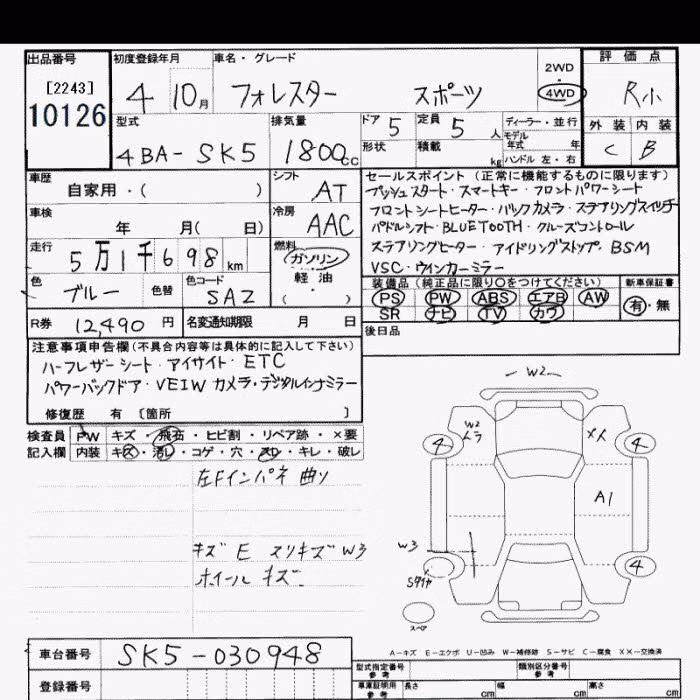 出品番号
[2243]
10126
初度登録年月
4 10月
車名・グレード
フォレスター スポーツ
2WD
・
4WD
評価点
R小
外装 内装
C B
型式
4BA-SK5
排気量
1800cc
ドア 5
形状
定員 5 人
積載 kg
ディーラー・並行
モデル年式 年
ハンドル 左・右
車歴
自家用・( )
シフト
AT
車検
年 月( 日)
冷房
AAC
走行
5万1千698km
燃料
ガソリン
軽油
( )
色
ブルー
色替
色コード
SAZ
R券 12,490 円
名変通知期限 月 日
セールスポイント(正常に機能するものに限ります)
プッシュスタート・スマートキー・フロントパワーシート
フロントシートヒーター・バックカメラ・ステアリングスイッチ
パドルシフト・BLUETOOTH・クルーズコントロール
ステアリングヒーター・アイドリングストップ・BSM
VSC・ウインカーミラー
装備品(純正品に限り○をつけてください)
PS PW ABS エアB AW
SR ナビ TV カワ
新車保証書
有・無
後日品
注意事項申告欄(不具合内容等は具体的に記入して下さい)
ハーフレザーシート・アイサイト・ETC
パワーバックドア・VEIWカメラ・デジタルインナミラー
修復歴 有 〔箇所 〕
検査員
記入欄
PW キズ・飛石・ヒビ割・リペア跡・×要
内装 キズ・汚レ・コゲ・穴・スレ・キレ・破レ
左Fインパネ 曲リ
キズ E スリキズ W3
ホイール キズ
W2
W2
ムラ
XX
4
4
A1
W3
Sタイヤ
4
スペア
A-キズ E-エクボ U-凹み W-補修跡 S-サビ C-腐食 XX-交換済
車台番号 SK5-030948
登録番号
型式指定番号
参考
類別区分番号
参考
車庫証明用
参考
長さ cm 幅 cm 高さ cm